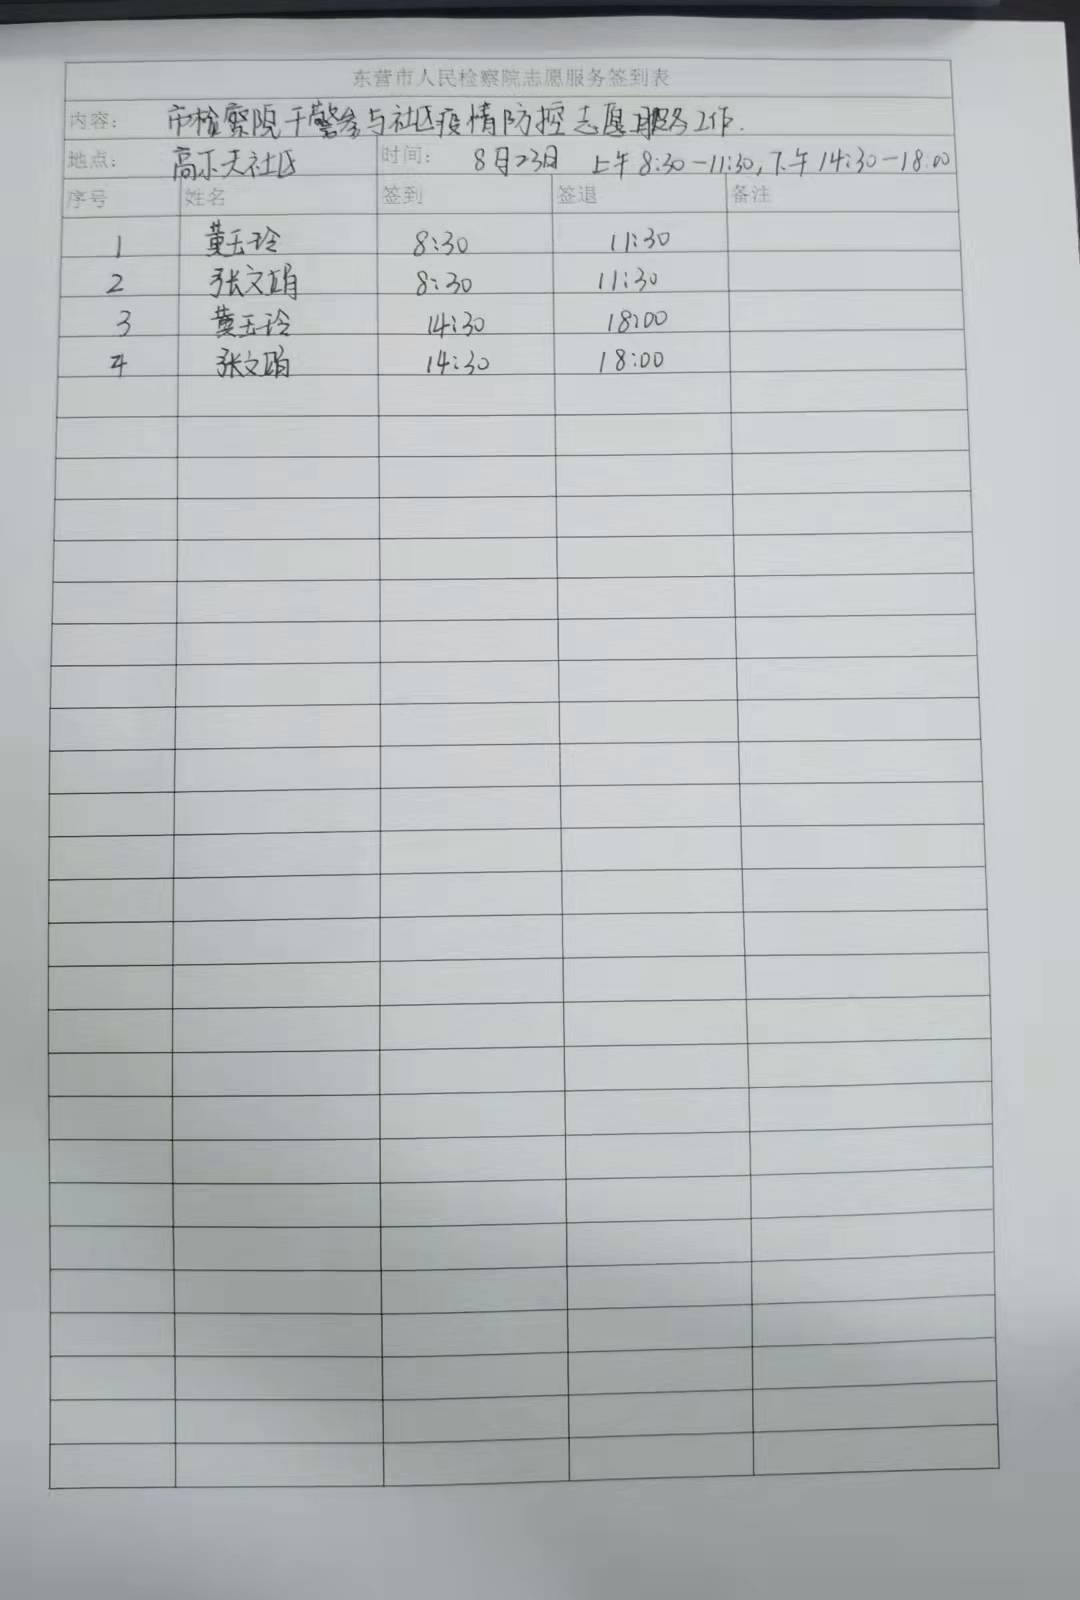 东营市人民检察院志愿服务签到表
内容： 市检察院干警参与社区疫情防控志愿服务工作.
地点： 高尔夫社区 时间： 8月23日 上午8:30-11:30,下午14:30-18:00
序号 姓名 签到 签退 备注
1 黄玉玲 8:30 11:30
2 张文娟 8:30 11:30
3 黄玉玲 14:30 18:00
4 张文娟 14:30 18:00